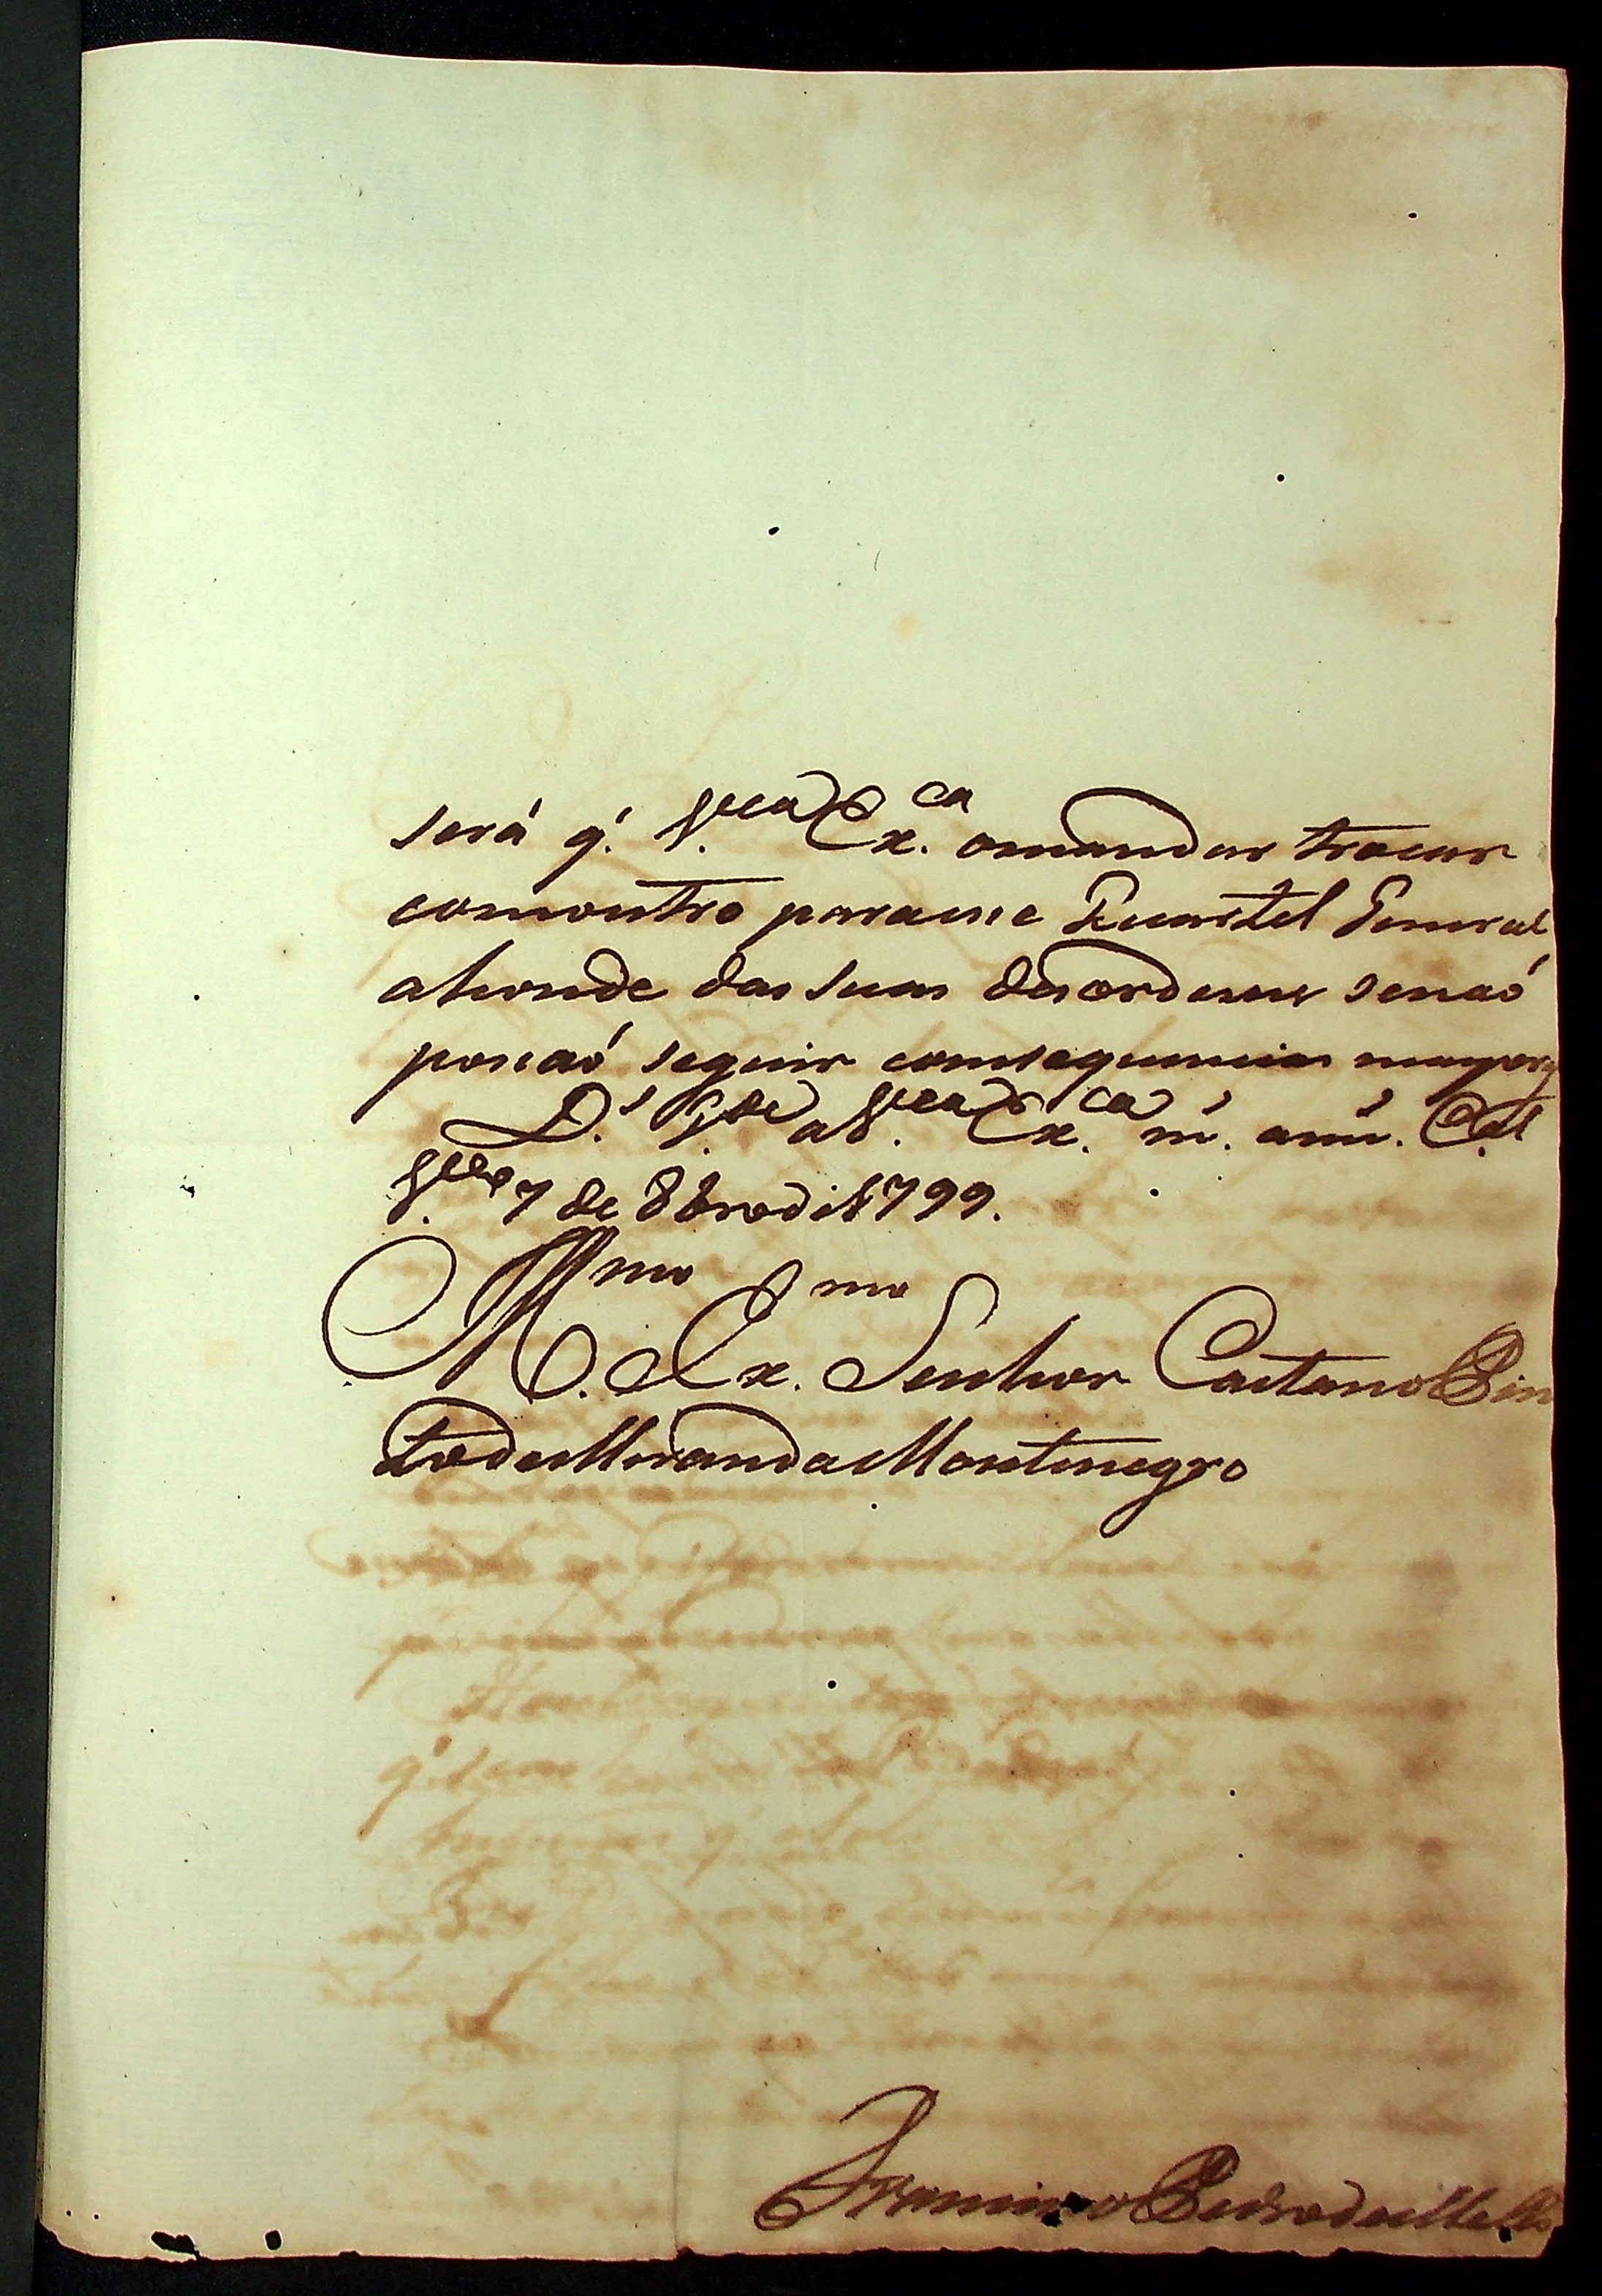 será q́. V.ª Ex.ca omandar trocar
comoutro paraesse Quartel General
ahonde das suas desordens senaó
possaó seguir comsequencias mayores
D.s G.de a V.ª Ex.ca m.s ann.s
7 de 8bro de 1799.
Ill.mo Ex.mo Senhor Caetano Pin
to de Miranda Montenegro
Francisco Pedro de Mello